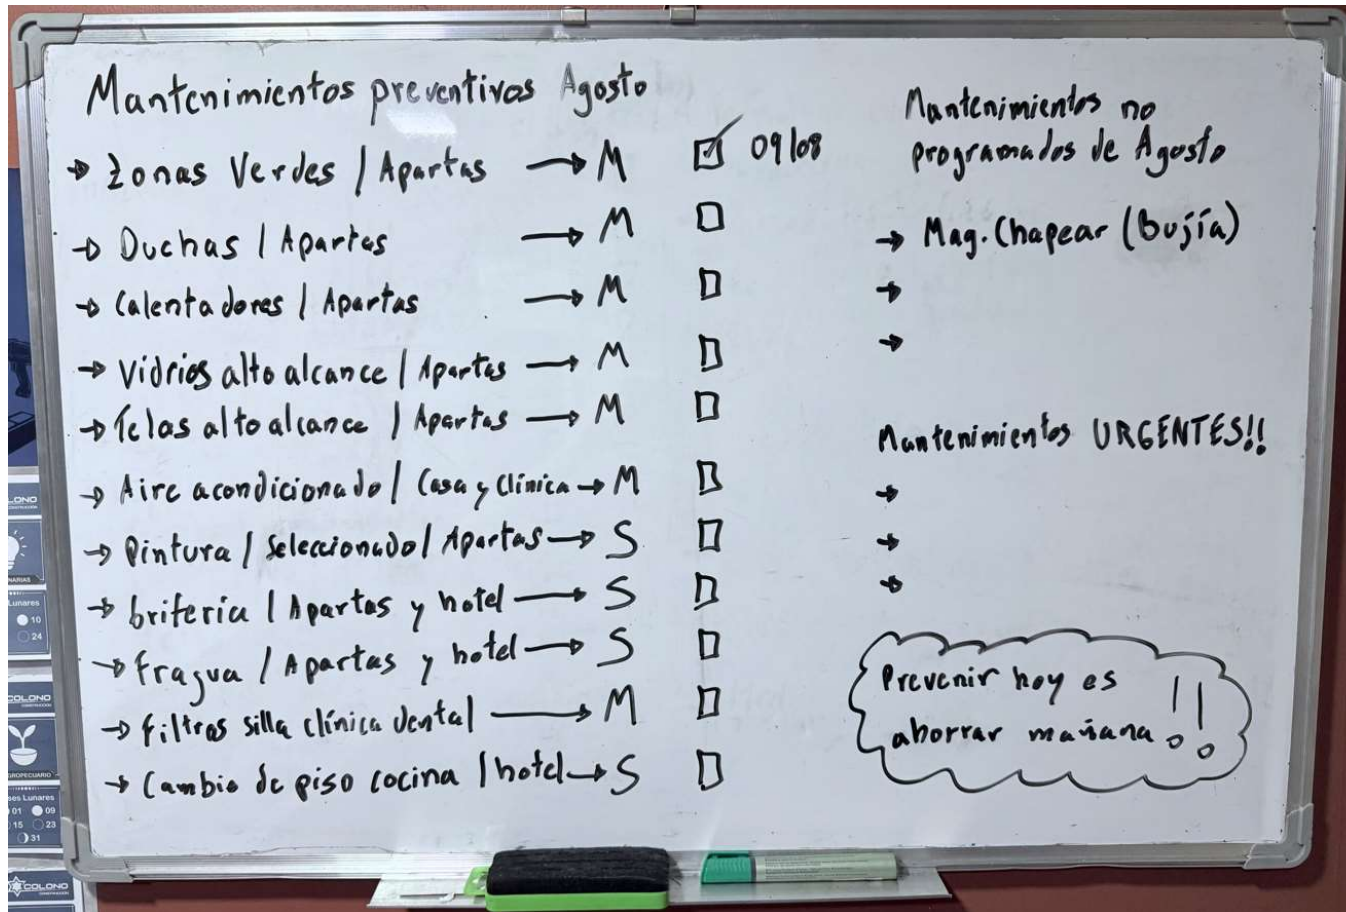 Mantenimientos preventivos Agosto
→ Zonas Verdes / Apartas → M ☑ 09/08
→ Duchas / Apartas → M ☐
→ Calentadores / Apartas → M ☐
→ Vidrios alto alcance / Apartas → M ☐
→ Telas alto alcance / Apartas → M ☐
→ Aire acondicionado / Casa y Clínica → M ☐
→ Pintura / Seleccionado / Apartas → S ☐
→ briferia / Apartas y hotel → S ☐
→ fragua / Apartas y hotel → S ☐
→ filtros silla clínica dental → M ☐
→ Cambio de piso cocina / hotel → S ☐
Mantenimientos no
programados de Agosto
→ Mag. Chapear (Bujía)
→
→
Mantenimientos URGENTES!!
→
→
→
Prevenir hoy es
ahorrar mañana!!
LONO
CONSTRUCCIÓN
NARIAS
Lunares
10
24
COLONO
CONSTRUCCIÓN
GROPECUARIO
ses Lunares
01 09
15 23
31
COLONO
CONSTRUCCIÓN